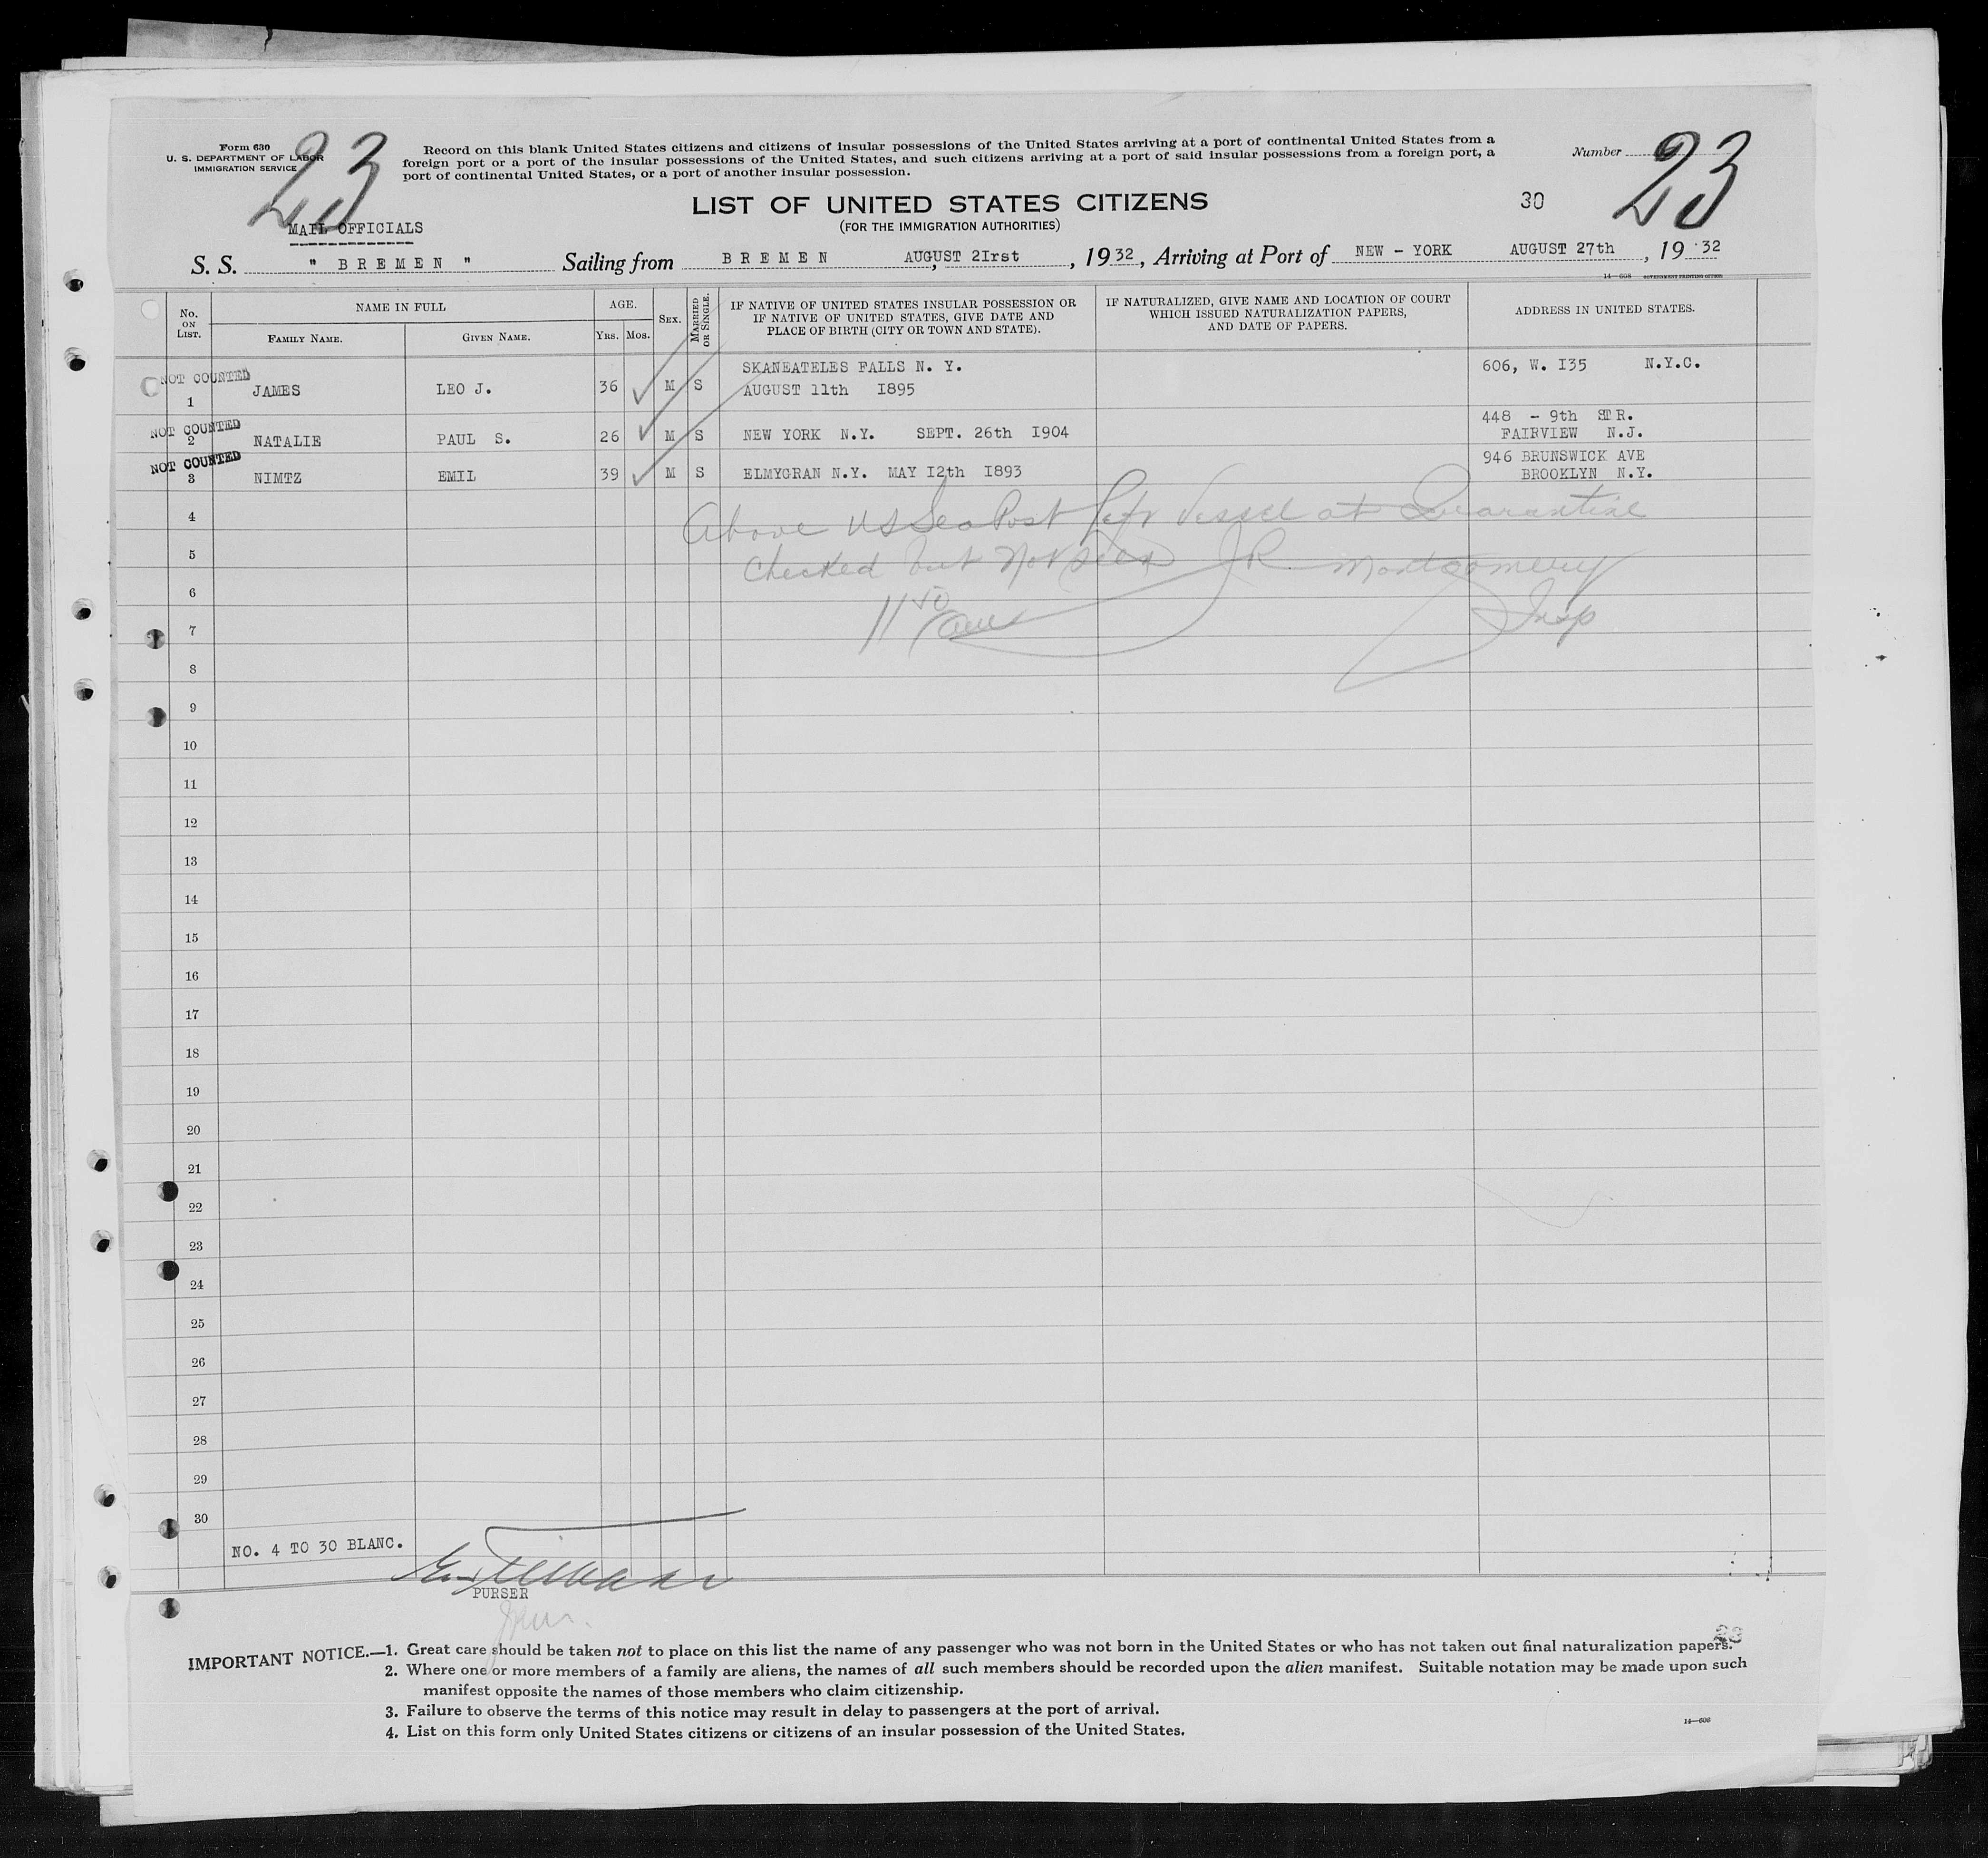 Form 630
U. S. DEPARTMENT OF LABOR
IMMIGRATION SERVICE
23
Record on this blank United States citizens and citizens of insular possessions of the United States arriving at a port of continental United States from a
foreign port or a port of the insular possessions of the United States, and such citizens arriving at a port of said insular possessions from a foreign port, a
port of continental United States, or a port of another insular possession.
Number 23
LIST OF UNITED STATES CITIZENS
30
(FOR THE IMMIGRATION AUTHORITIES)
MAIL OFFICIALS
S. S. " BREMEN " Sailing from BREMEN AUGUST 2Irst, 1932, Arriving at Port of NEW - YORK AUGUST 27th, 19 32
14—608 GOVERNMENT PRINTING OFFICE
No. ON LIST.
NAME IN FULL
FAMILY NAME.
GIVEN NAME.
AGE.
YRS. MOS.
SEX.
MARRIED OR SINGLE.
IF NATIVE OF UNITED STATES INSULAR POSSESSION OR
IF NATIVE OF UNITED STATES, GIVE DATE AND
PLACE OF BIRTH (CITY OR TOWN AND STATE).
IF NATURALIZED, GIVE NAME AND LOCATION OF COURT
WHICH ISSUED NATURALIZATION PAPERS,
AND DATE OF PAPERS.
ADDRESS IN UNITED STATES.
SKANEATELES FALLS N. Y. 606, W. I35 N.Y.C.
NOT COUNTED
1 JAMES LEO J. 36 M S AUGUST 11th I895
448 - 9th STR.
NOT COUNTED
2 NATALIE PAUL S. 26 M S NEW YORK N.Y. SEPT. 26th I904 FAIRVIEW N.J.
946 BRUNSWICK AVE
NOT COUNTED
3 NIMTZ EMIL 39 M S ELMYGRAN N.Y. MAY I2th I893 BROOKLYN N.Y.
4 Above US Sea Post left Vessel at Quarantine
5 Checked but not seen JR Montgomery
6
11 50 am Insp
7
8
9
10
11
12
13
14
15
16
17
18
19
20
21
22
23
24
25
26
27
28
29
30
NO. 4 TO 30 BLANC.
PURSER
23
IMPORTANT NOTICE.—1. Great care should be taken not to place on this list the name of any passenger who was not born in the United States or who has not taken out final naturalization papers.
2. Where one or more members of a family are aliens, the names of all such members should be recorded upon the alien manifest. Suitable notation may be made upon such
manifest opposite the names of those members who claim citizenship.
3. Failure to observe the terms of this notice may result in delay to passengers at the port of arrival.
4. List on this form only United States citizens or citizens of an insular possession of the United States.
14—606